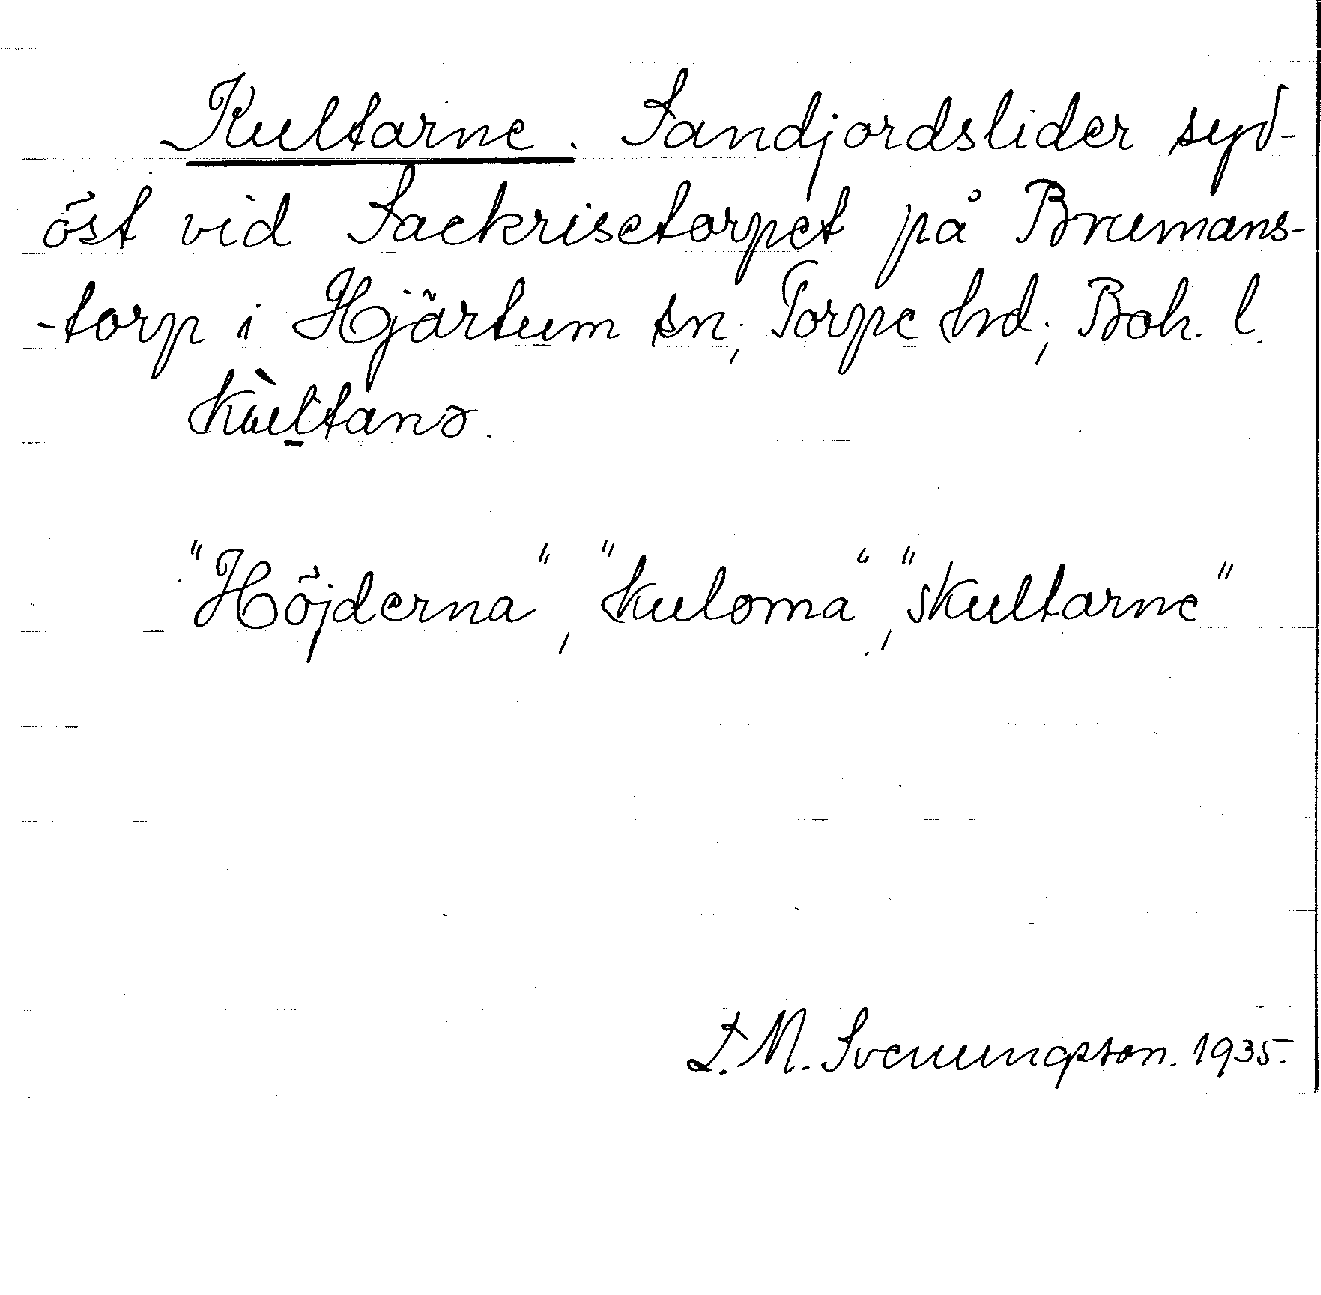 Kultarne. Sandjordslider syd-
öst vid Sackrisetorpet på Brumans-
-torp i Hjärtum sn, Torpe hd; Boh. l.
kùltanə.
"Höjderna", "kulorna", "skultarne"
D. M. Svenungsson. 1935.